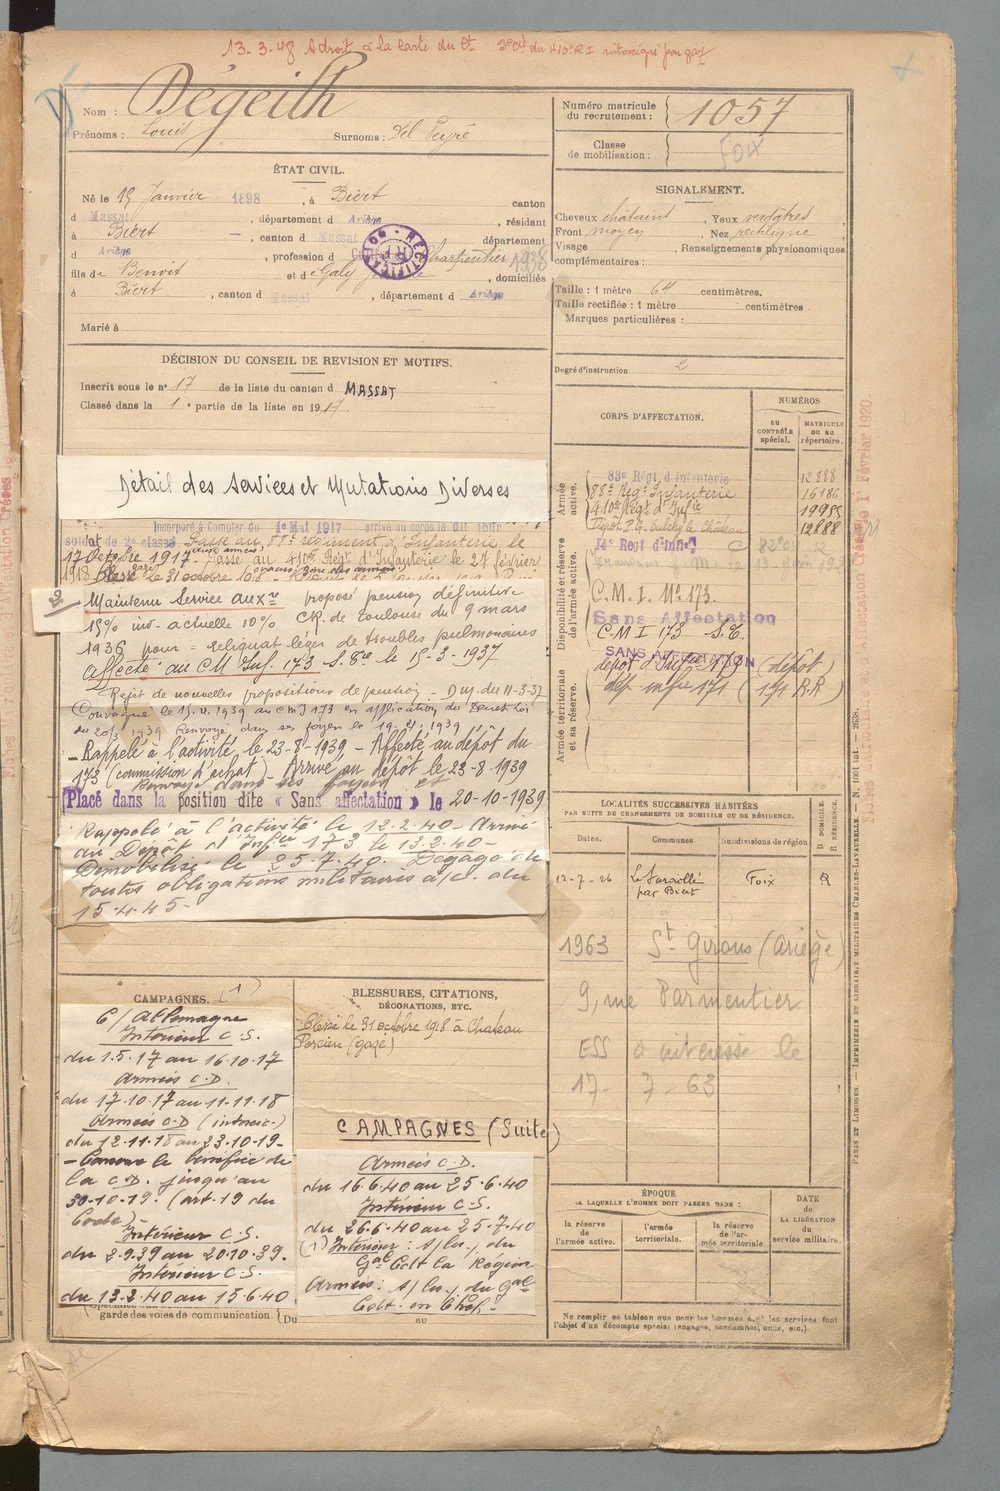 13-3-48 A droit à la carte du Ct 2e Cie du 410e R I intoxiqué par gaz
Nom : Dégeilh
Prénoms : Louis Surnoms : Del Peyré
Numéro matricule du recrutement : 1057
Classe de mobilisation :
Foix
ÉTAT CIVIL.
Né le 15 Janvier 1898, à Biert canton
d Massat, département d Ariège, résidant
à Biert, canton d Massat département
d Ariège, profession d Charpentier 1938
RECTIFICATION
fils de Benoit et d Galy, domiciliés
à Biert, canton d Massat, département d Ariège
Marié à
SIGNALEMENT.
Cheveux châtains, Yeux verdâtres
Front moyen, Nez rectiligne
Visage, Renseignements physionomiques
complémentaires :
Taille : 1 mètre 64 centimètres.
Taille rectifiée : 1 mètre centimètres.
Marques particulières :
Degré d'instruction 2
DÉCISION DU CONSEIL DE REVISION ET MOTIFS.
Inscrit sous le n° 17 de la liste du canton d MASSAT
Classé dans la 1e partie de la liste en 1917.
Détail des Services et Mutations Diverses
Incorporé à Compter du 1er Mai 1917 arrivé au corps le dit jour
soldat de 2e classe Passé au 88e régiment d'Infanterie le
17 Octobre 1917 Passé au 410e Régt d'Infanterie le 27 février
1918 Blessé le 31 octobre 1918
2 Maintenu Service auxre proposé pension définitive
15% inv. actuelle 10% CR. de Toulouse du 9 mars
1936 pour = reliquat léger de troubles pulmonaires
affecté au CM Inf. 173 S. Are le 15-3-1937
Rejet de nouvelles propositions de pension - D M. du 11-3-37
Convoqué le au CMI 173 en application du Décret loi
du 20/3 1939 Renvoyé dans ses foyers le 1939
- Rappelé à l'activité le 23-8-1939 - Affecté au dépôt du
173 (commission d'achat) Arrivé au dépôt le 23-8-1939
Renvoyé dans ses foyers et
Placé dans la position dite « Sans affectation » le 20-10-1939
Rappelé à l'activité le 12.2.40 - Arrivé
au Dépôt d'Infie 173 le 13.2.40 -
Démobilisé le 25.7.40. Dégagé de
toutes obligations militaires à/c. du
15.4.45 -
CORPS D'AFFECTATION.
NUMÉROS
au CONTRÔLE spécial.
MATRICULE ou au répertoire.
Armée active.
83e Régt d'Infanterie 12888
88e Régt Infanterie 16186
410e Régt d'Infie 19955
Dépôt P.G. Oulchy le Château 12888
Disponibilité et réserve de l'armée active.
14e Régt d'Infie
C.M.I. No 173.
Sans Affectation
C M I 173 S.A.
SANS AFFECTATION
Armée territoriale et sa réserve.
dépôt d'Infie 173 (dépôt)
dép. infie 171 (171 R.R)
LOCALITÉS SUCCESSIVES HABITÉES
PAR SUITE DE CHANGEMENTS DE DOMICILE OU DE RÉSIDENCE.
Dates. Communes Subdivisions de région D. DOMICILE. R. RÉSIDENCE.
12-7-26 par Biert Foix R
1963 St Girons (Ariège)
9, rue Parmentier
ESS d'adresse le
17- 7-63
CAMPAGNES. (1)
C/ Allemagne
Intérieur C.S.
du 1.5.17 au 16.10.17
Armées C.D.
du 17.10.17 au 11.11.18
Armées C.D (interr.)
du 12.11.18 au 23.10.19-
- Conserve le bénéfice de
la C.D. jusqu'au
30-10-19. (art. 19 du
Code)
Intérieur C.S.
du 2.9.39 au 20.10.39.
Intérieur C.S.
du 13.2.40 au 15.6.40
garde des voies de communication { Du au
BLESSURES, CITATIONS,
DÉCORATIONS, ETC.
Blessé le 31 octobre 1918 à Chateau
Porcien (gazé)
CAMPAGNES (Suite)
Armées C.D.
du 16.6.40 au 25.6.40
Intérieur C.S.
du 26.6.40 au 25.7.40
(1) Intérieur : s/les/ du
Gal Cdt la Région
Armées : s/les/ du Gal
Cdt. en Chef -
ÉPOQUE
A LAQUELLE L'HOMME DOIT PASSER DANS :
la réserve de l'armée active.
l'armée territoriale.
la réserve de l'armée territoriale.
DATE de LA LIBÉRATION du service militaire.
Ne remplir ce tableau que pour les hommes dont les services font
l'objet d'un décompte spécial (engagés, condamnés, omis, etc.).
PARIS ET LIMOGES. — IMPRIMERIE ET LIBRAIRIE MILITAIRES CHARLES-LAVAUZELLE. — N. 1001 int. — 2638.